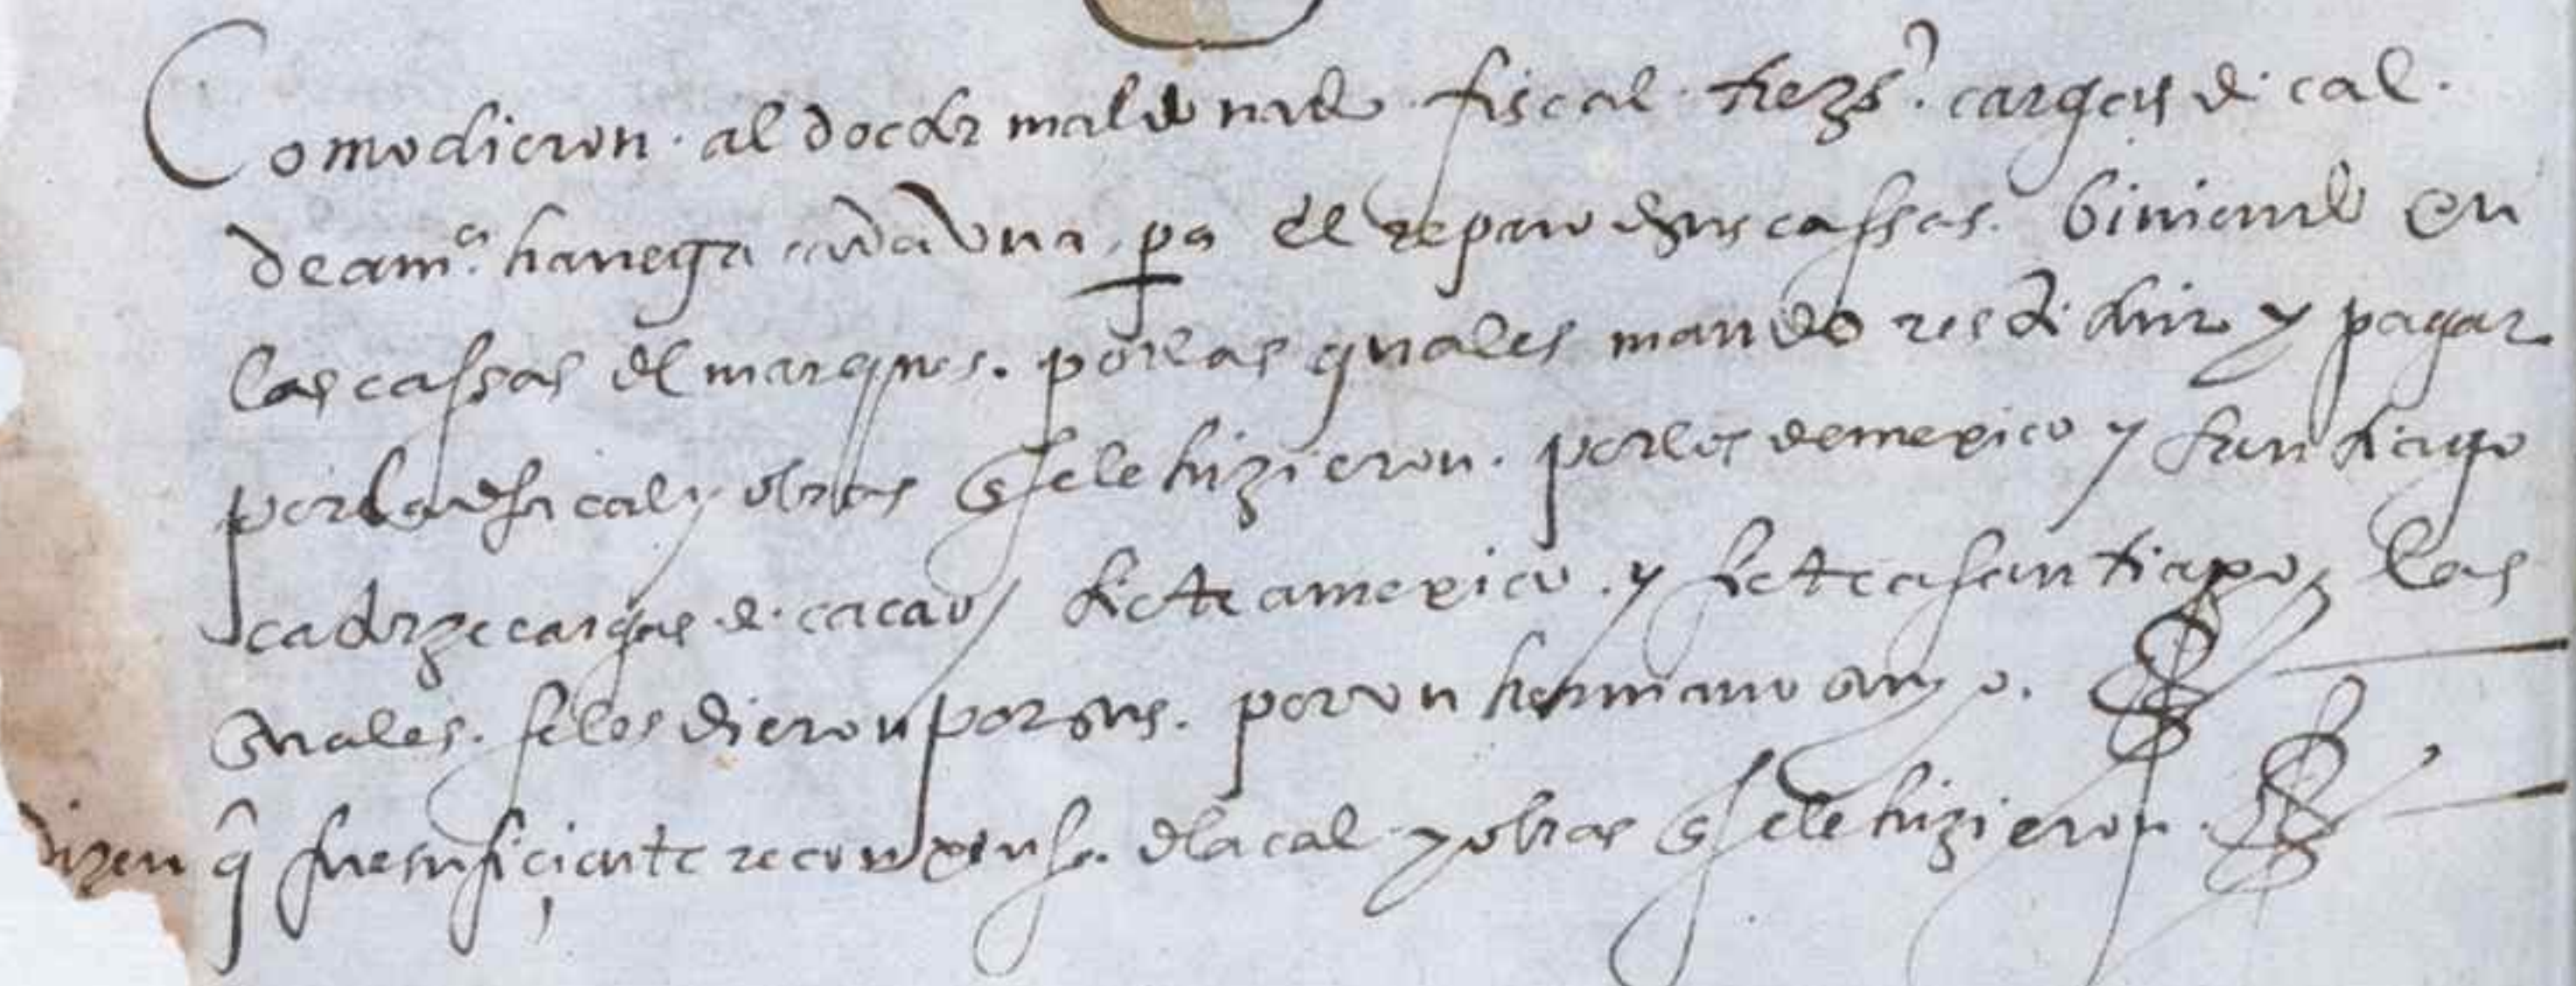 Como dieron. al doctor maldonado. fiscal. trezs. cargas de cal.
de a mª. hanega cada vna. pa el reparo de sus cassas. biniendo en
las cassas del marques. por las quales mando restituir y pagar
por la dha cal y obras q se le hizieron. por los de mexico y santiago
catorze cargas de. cacao / siete a mexico. y siete a santiago, las
quales. se les dieron por sus. por vn hermano suyo.
dizen q̃ fue suficiçiente reconpensa. de la cal y obras q se le hizieron.